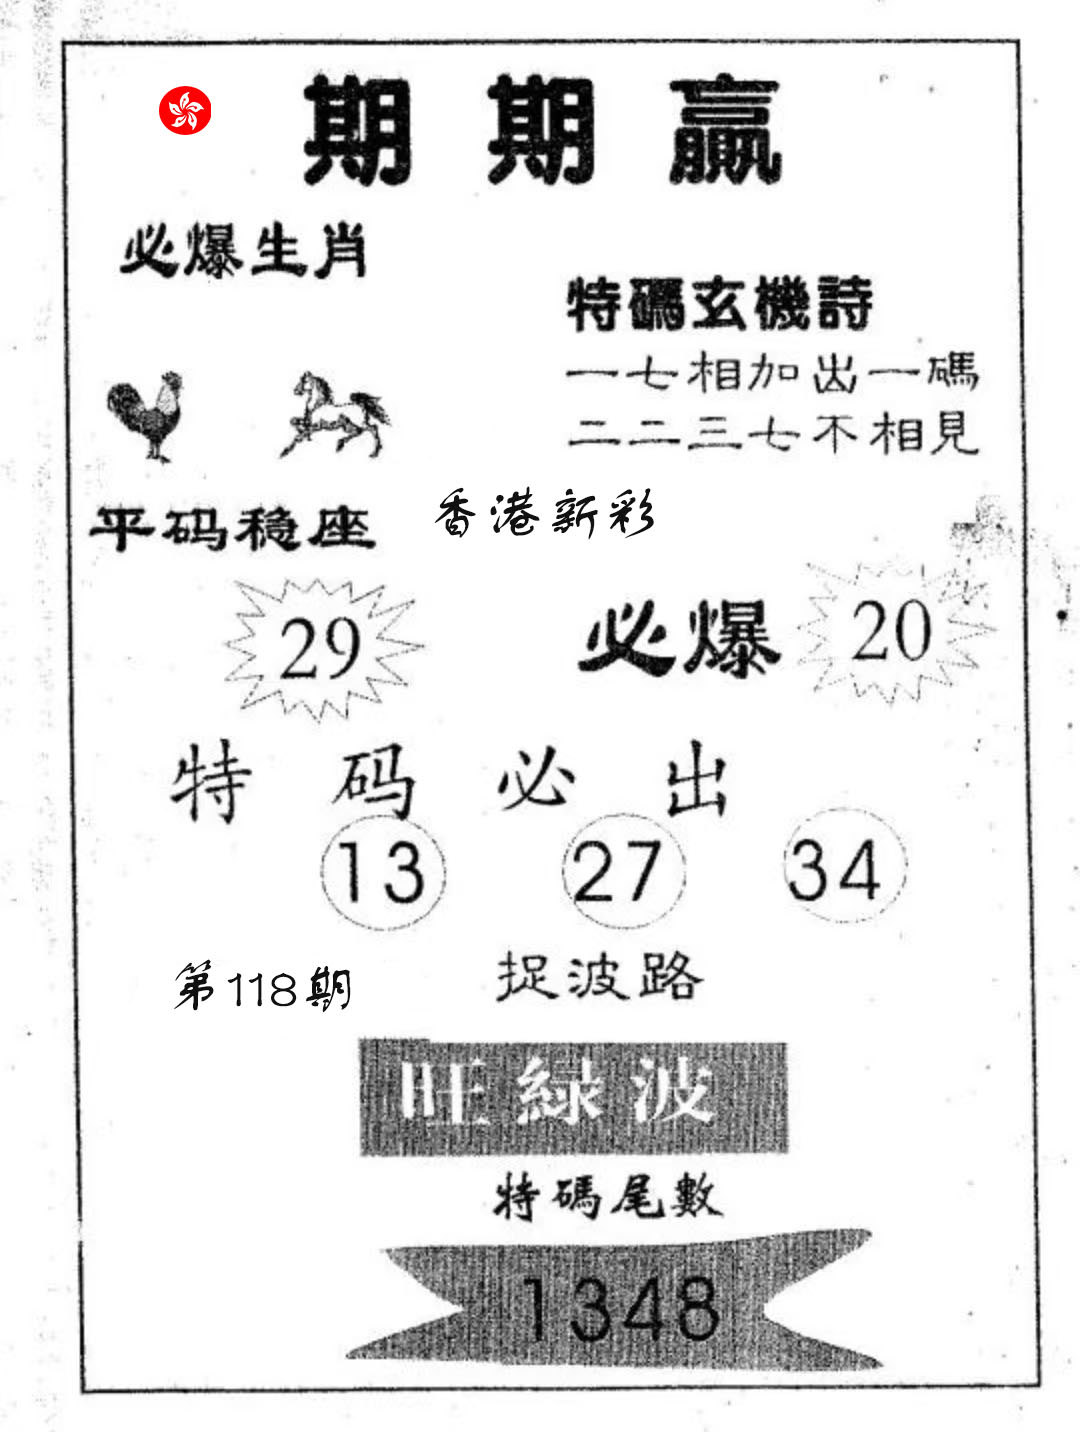 期期贏
必爆生肖
特碼玄機詩
一七相加出一碼
二二三七不相見
平码稳座
香港新彩
29
必爆 20
特码必出
13 27 34
第118期
捉波路
旺緑波
特碼尾數
1348